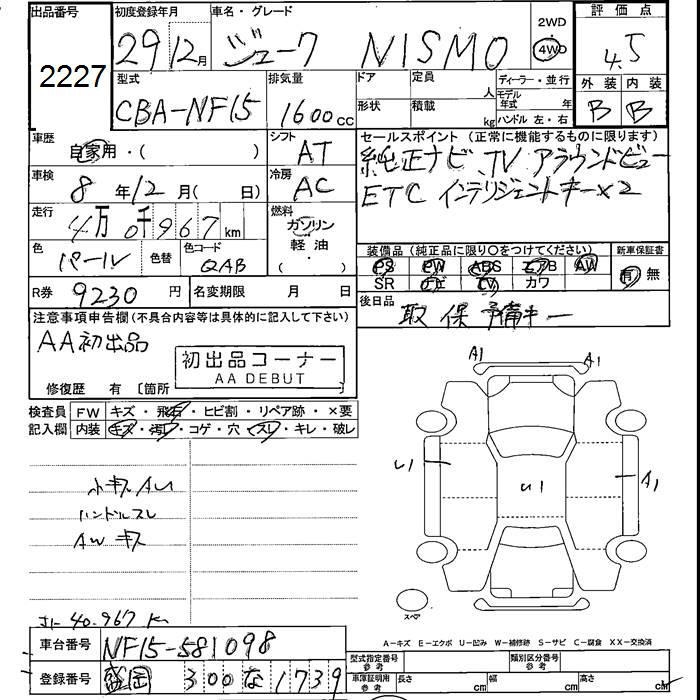 出品番号 初度登録年月 車名・グレード 2WD 評価点
2227 29年12月 ジューク NISMO 4WD 4.5
型式 排気量 ドア 定員 人 ディーラー・並行 外装 内装
CBA-NF15 1600cc 形状 積載 kg モデル年式 年 ハンドル 左・右 B B
車歴 自家用・( ) シフト AT セールスポイント (正常に機能するものに限ります)
純正ナビ、TV アラウンドビュー
車検 8年12月( 日) 冷房 AC ETC インテリジェントキー×2
走行 4万0千967km 燃料 ガソリン 軽油 ・( )
色 パール 色替 色コード QAB 装備品 (純正品に限り○をつけてください) 新車保証書
PS PW ABS エアB AW 有・無
SR ナビ TV カワ
R券 9230円 名変期限 月 日 後日品 取 保 予備キー
注意事項申告欄(不具合内容等は具体的に記入して下さい)
AA初出品
初出品コーナー
AA DEBUT
修復歴 有 〔箇所 〕
検査員 FW キズ・飛石・ヒビ割・リペア跡・×要
記入欄 内装 キズ・汚レ・コゲ・穴・スレ・キレ・破レ
A1 A1
U1 U1 A1
小キズAU
ハンドルスレ
AW キズ
スペア
40.967K
A-キズ E-エクボ U-凹み W-補修跡 S-サビ C-腐食 XX-交換済
車台番号 NF15-581098 型式指定番号 参考 類別区分番号 参考
登録番号 盛岡 300 な 1739 車庫証明用 参考 長さ cm 幅 cm 高さ cm